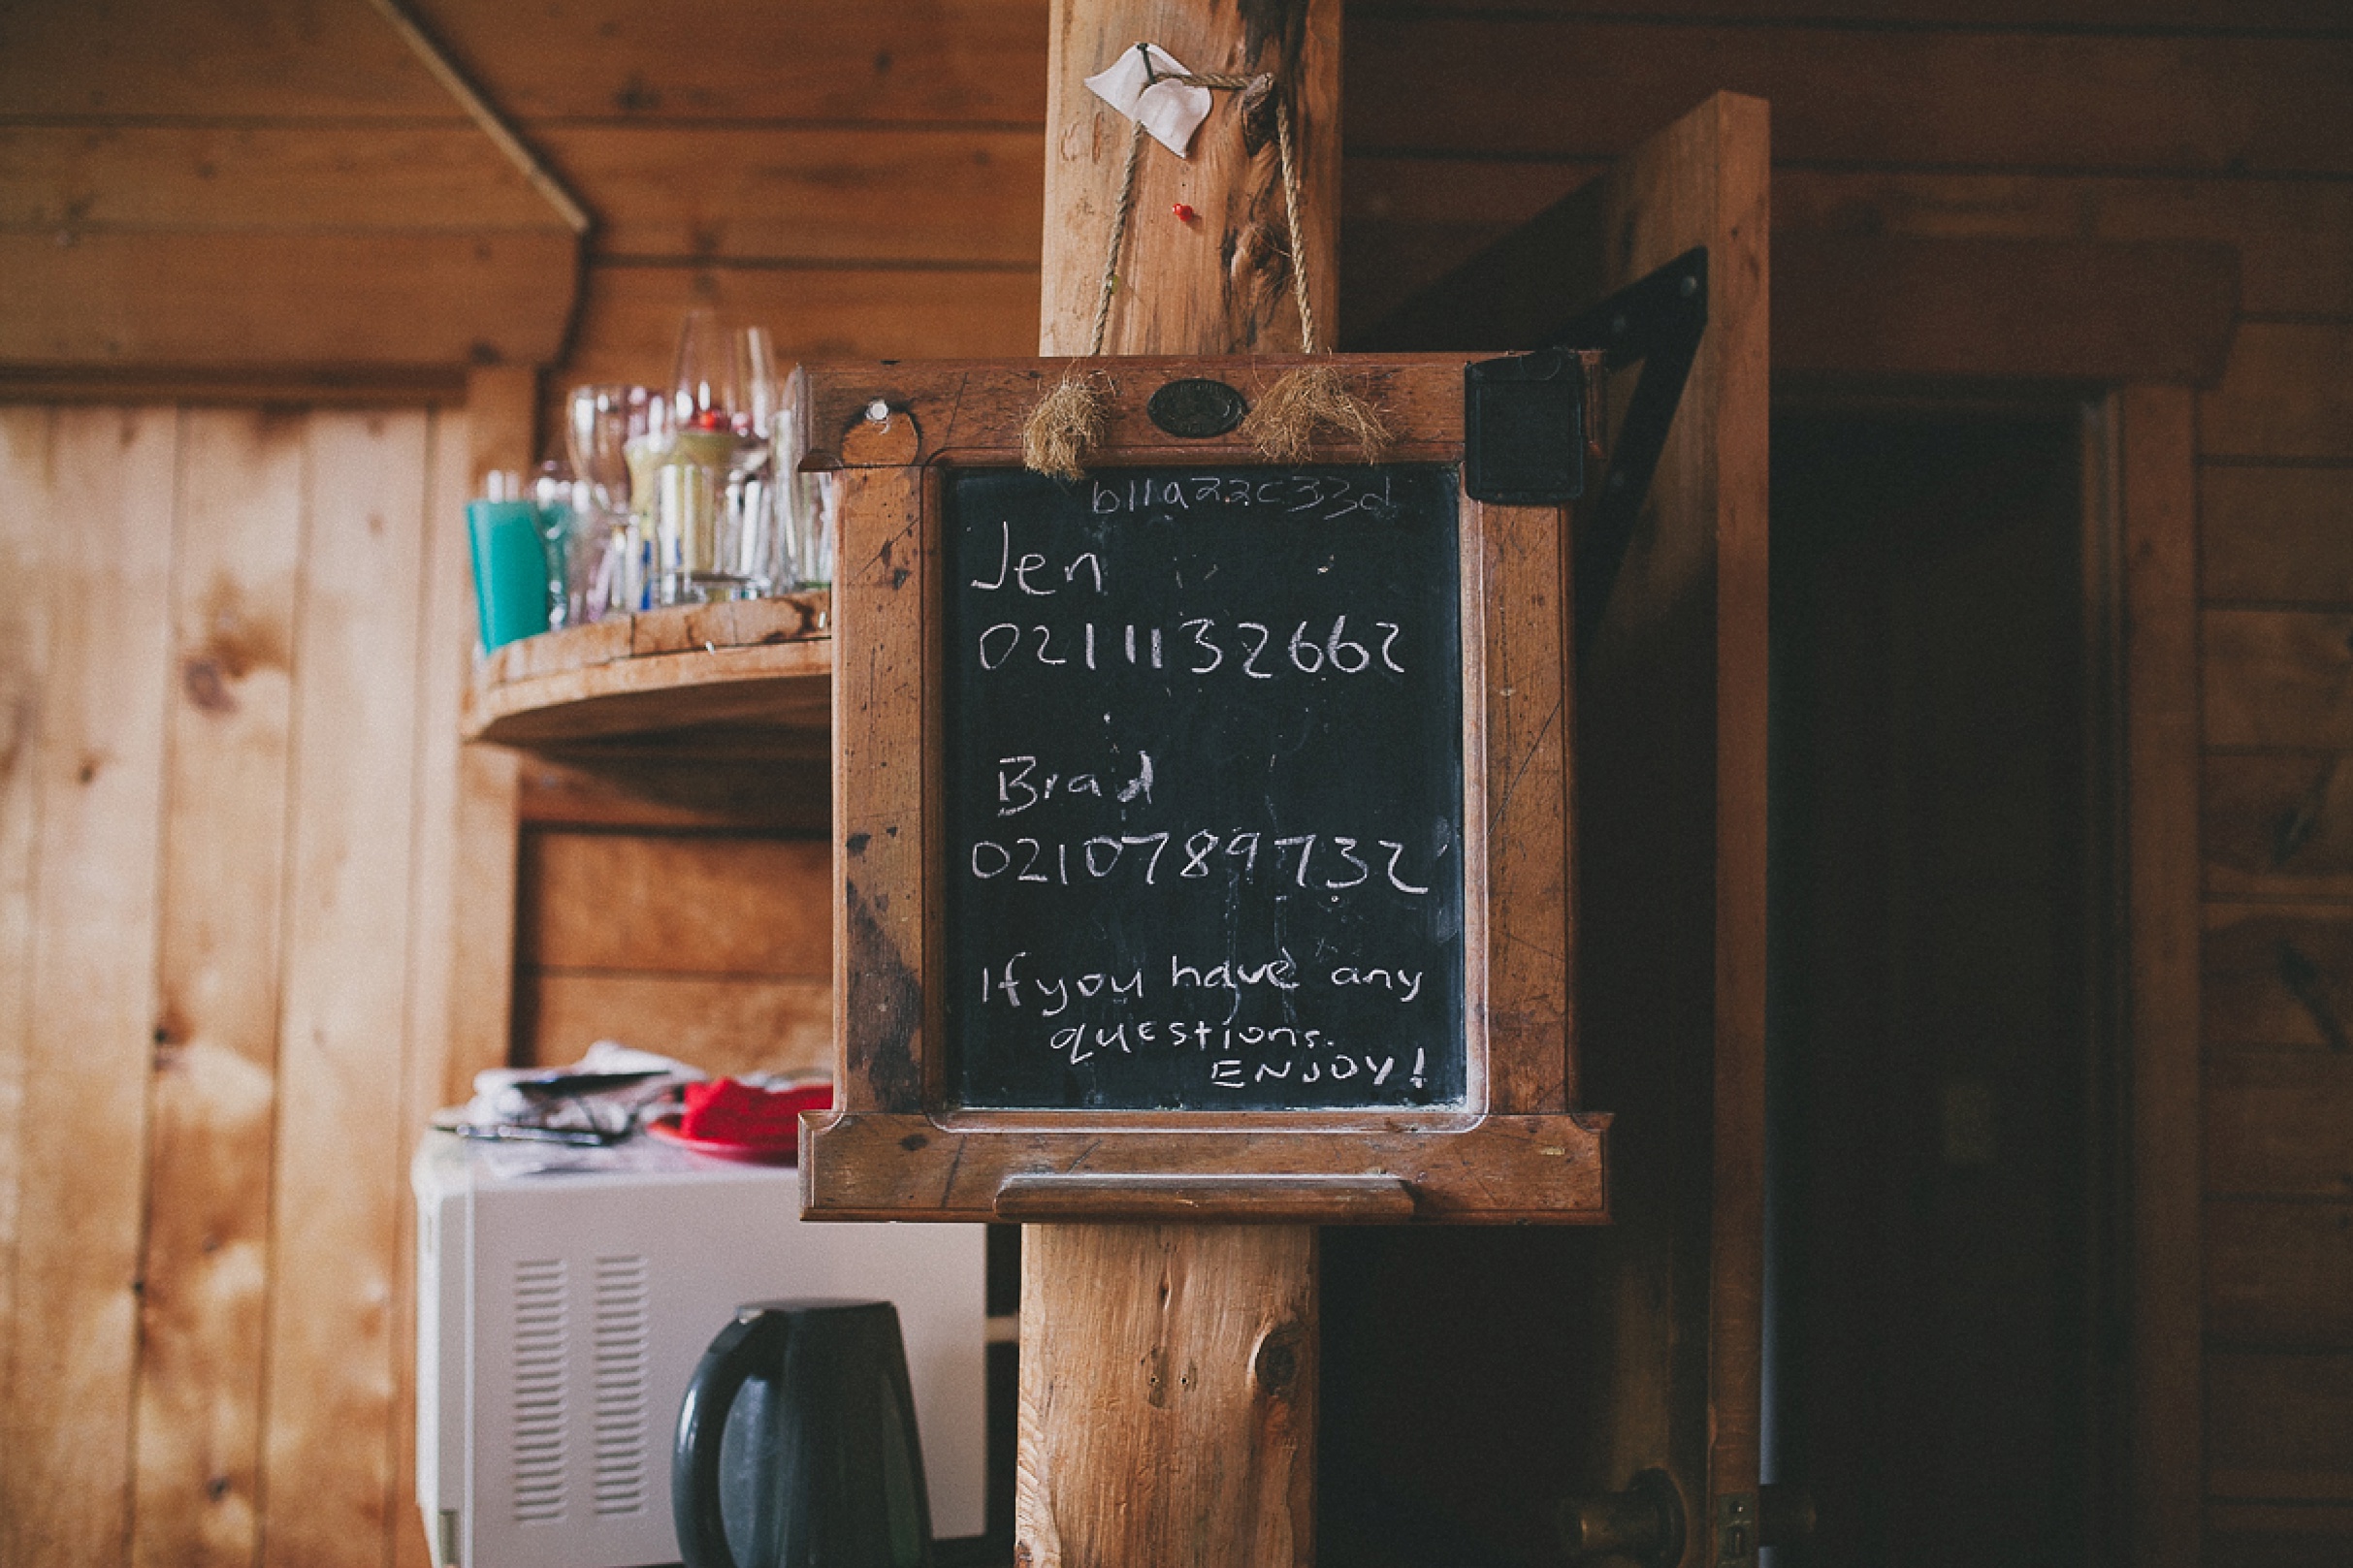 b11a22c33d
Jen
02111132662
Brad
0210789732
If you have any
questions.
ENJOY!